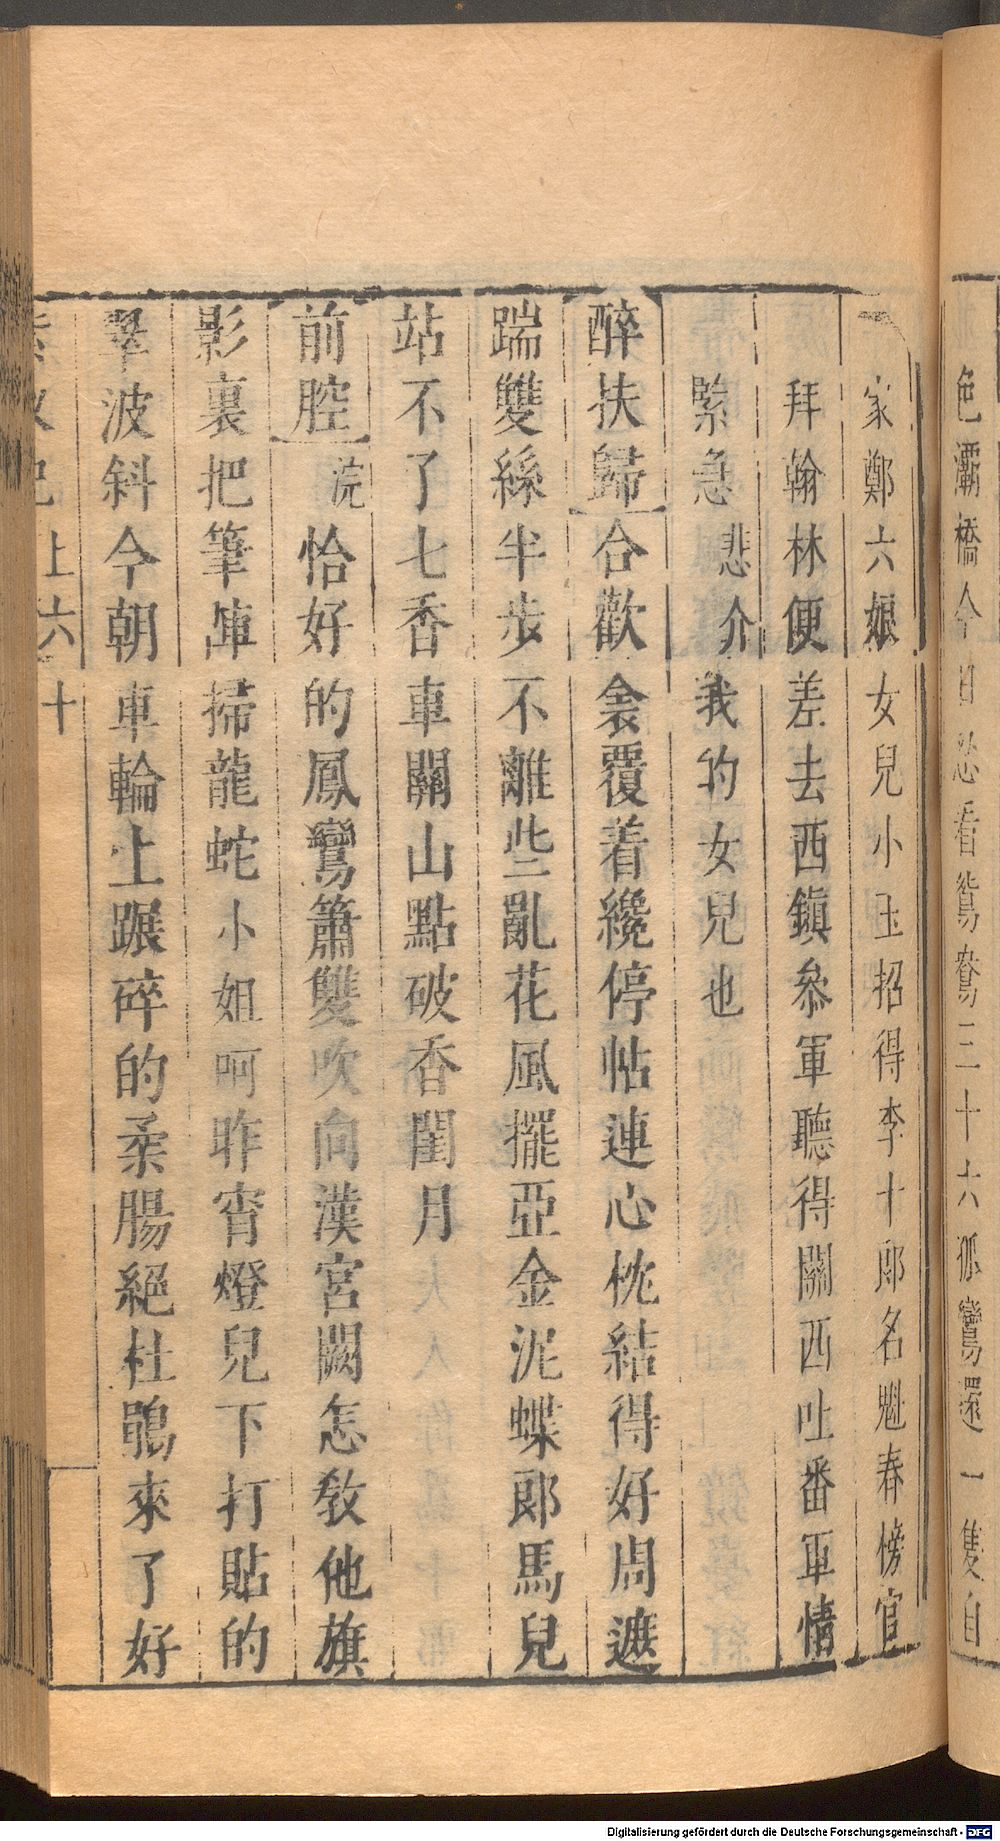 色灞橋今日愁看鴛鴦三十六孤鸞還一隻自
家鄭六娘女兒小玉招得李十郎名魁春榜官
拜翰林便差去西鎮參軍聽得關西吐番軍情
緊急悲介我的女兒也
醉扶歸合歡衾覆着纔停帖連心枕結得好周遮
踹雙絲半步不離些亂花風擺亞金泥蝶郎馬兒
站不了七香車關山點破香閨月
前腔浣恰好的鳳鸞簫雙吹向漢宮闕怎教他旗
影裏把筆陣掃龍蛇小姐呵昨宵燈兒下打貼的
翠波斜今朝車輪上蹍碎的柔腸絕杜鵑來了好
上六十
Digitalisierung gefördert durch die Deutsche Forschungsgemeinschaft - DFG